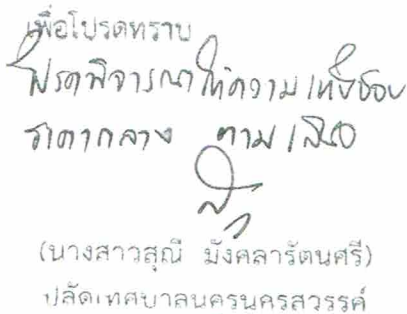 เพื่อโปรดทราบ
โปรดพิจารณาให้ความเห็นชอบ
ราคากลาง ตามเสนอ
(นางสาวสุณี มังคลารัตนศรี)
ปลัดเทศบาลนครนครสวรรค์